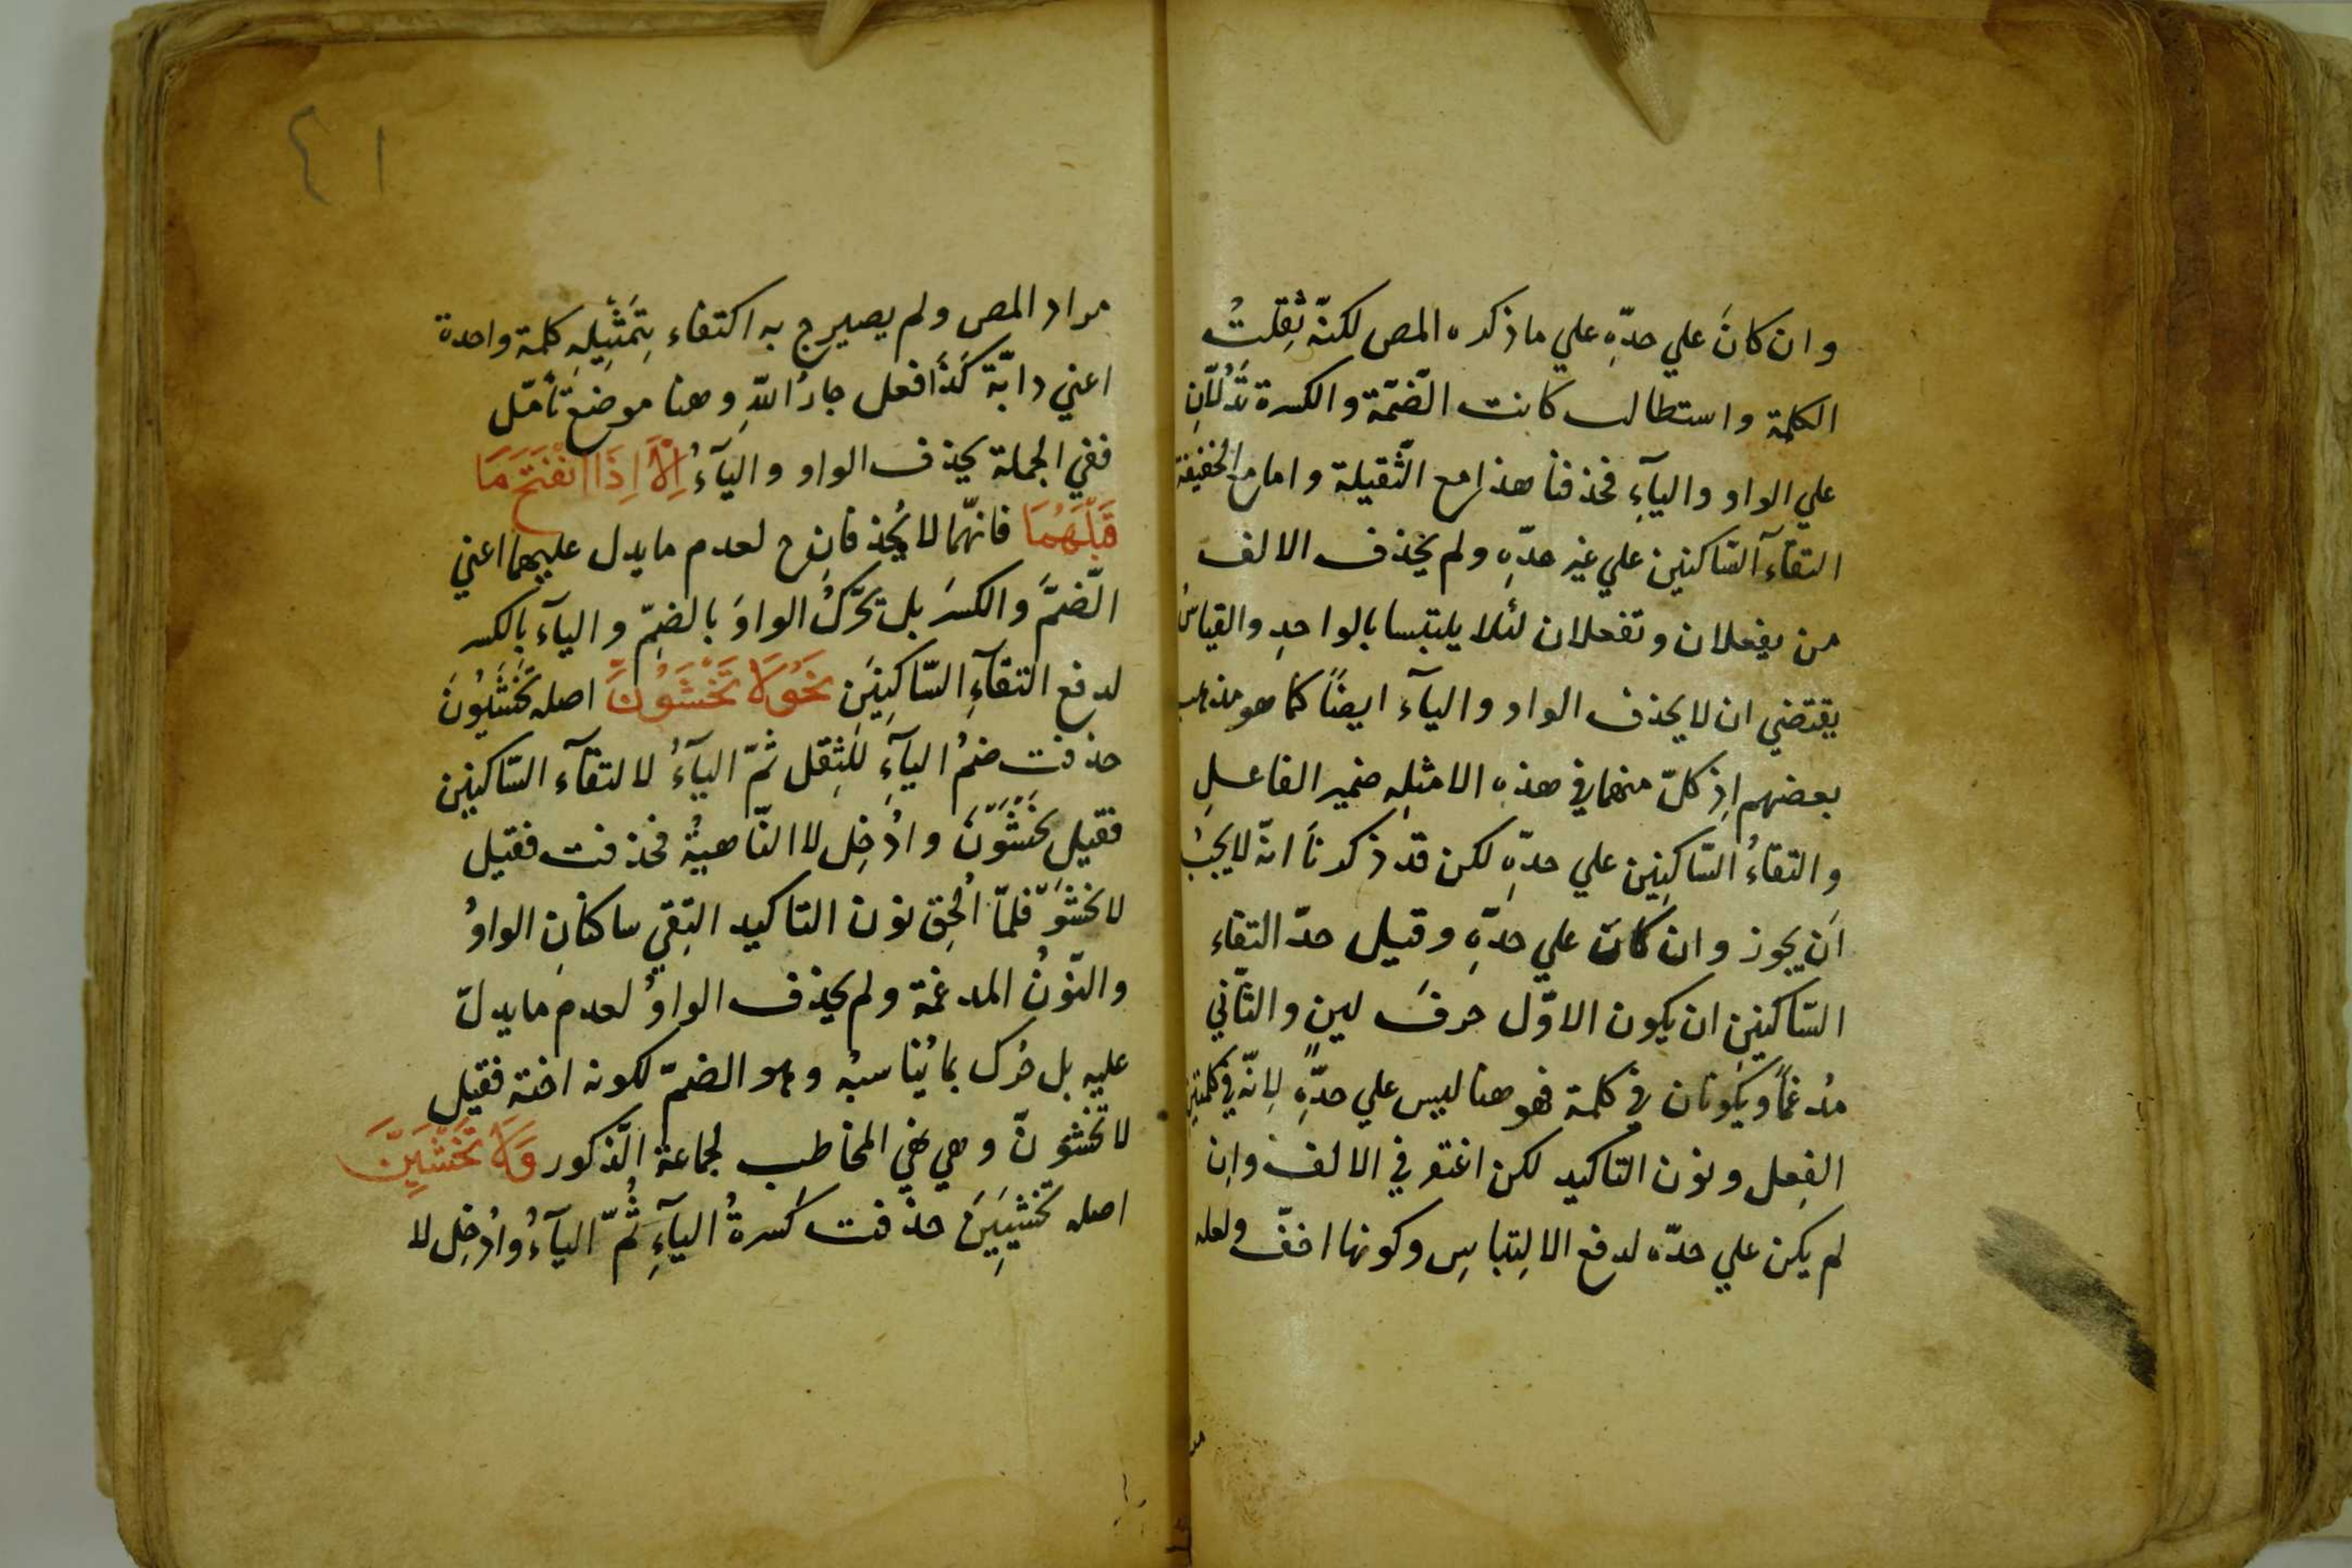 وان كانَ علي حدّهِ علي ماذكره المص لكنّه ثقِلتُ
الكلمة واستطالت كانت الضّمّة والكسرة تَدُلّانِ
علي الواو والياۤءِ فحذفنا هذا مع الثّقيلة واما مع الخفيفة
التقاۤء السّاكنين علي غير حدّهِ ولم يحذف الالف
من يفعلان وتفعلان لئلا يلبتسا بالواحدِ والقياسُ
يقتضي ان لا يحذف الواو والياۤء ايضًا كما هو مذهب
بعضهم اِذ كلّ منهما في هذه الامثلهِ ضمير الفاعلِ
والتقاءُ السّاكنِين علي حدّهِ لكن قد ذكرنَا انّه لا يجبُ
اَن يجوز وان كان علي حدّهِ وقيل حدّ التقاء
السّاكنينِ ان يكون الاوّل حرفَ لينٍ والثّاني
مُدغمًا ويكونان في كلمة فهو هنا ليس علي حدّهِ لِانّه في كلمتين
الفِعل ونون التاكيد لكن اغتفر في الالف واِن
لم يكن علي حدّه لدفع الالِتباسِ وكونها اخفّ ولعله
٤١
مراد المص ولم يصيرح به اكتفاء بِتَمثْيلِهِ كلمة واحدة
اعني دابّة كَذَا فعل جارُ اللّهِ وهنا موضع تأمّل
ففي الجملة يحذف الواو والياۤءُ اِلَّا اِذَا انْفَتَحَ مَا
قَبْلَهُمَا فانهّما لا يُحذفانِ ح لعدم ما يدل عليهما اعني
الّضمَّ والكسرَ بل تحَّركُ الواوَ بالضمِّ والياۤء بالكسر
لدفع التقاۤءِ السّاكِنِينَ نَحْوُ لَا تَخْشَوُنَّ اصله تخْشَيُونَ
حذفت ضمُ الياۤءِ للثِقل ثمّ الياۤءُ لالتقاۤء السّاكنين
فقيل تخشَوْنَ واُدْخِل لا النّاهيةُ فحذفت فقيل
لا تخشَوْ فلمّا اُلحِق نون التاكيد التِقي ساكنانِ الواوُ
والنّونُ المدغمة ولم يحذف الواوُ لعدم مايدلّ
عليه بل حُرك بما يُناسبُه وهو الضمّ لكونه اخته فقيل
لا تخشَوُنّ وهي نهي المخاطب لجماعة الّذكور وَلَا تَخْشَيِنَّ
اصله تخشيِيَنَ حذفت كَسرةُ الياۤءِ ثُمّ الياۤءُ واُدْخِل لا